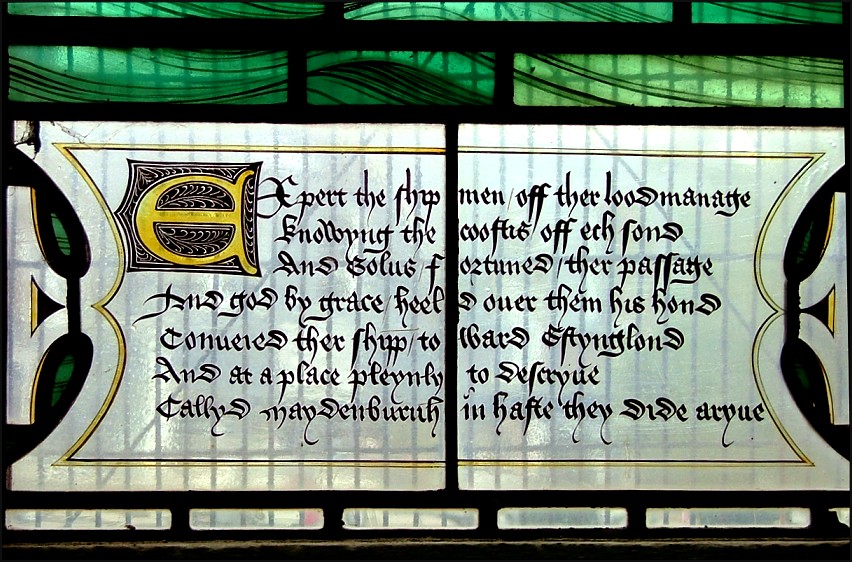 Expert the ship men / off ther loodmanage
knowyng the cooftis off ech sond
And Eolus fortuned / ther passage
And god by grace / heeld ouer them his hond
Conueied ther shipp / to ward Estynglond
And at a place pleynly to descryue
Callyd maydenburuh in haste they dide aryue